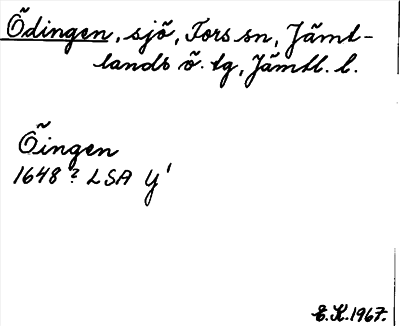 Ödingen, sjö, Fors sn, Jämt-
lands ö. tg, Jämtl. l.
Öingen
1648? LSA Y¹
E.K.1967.